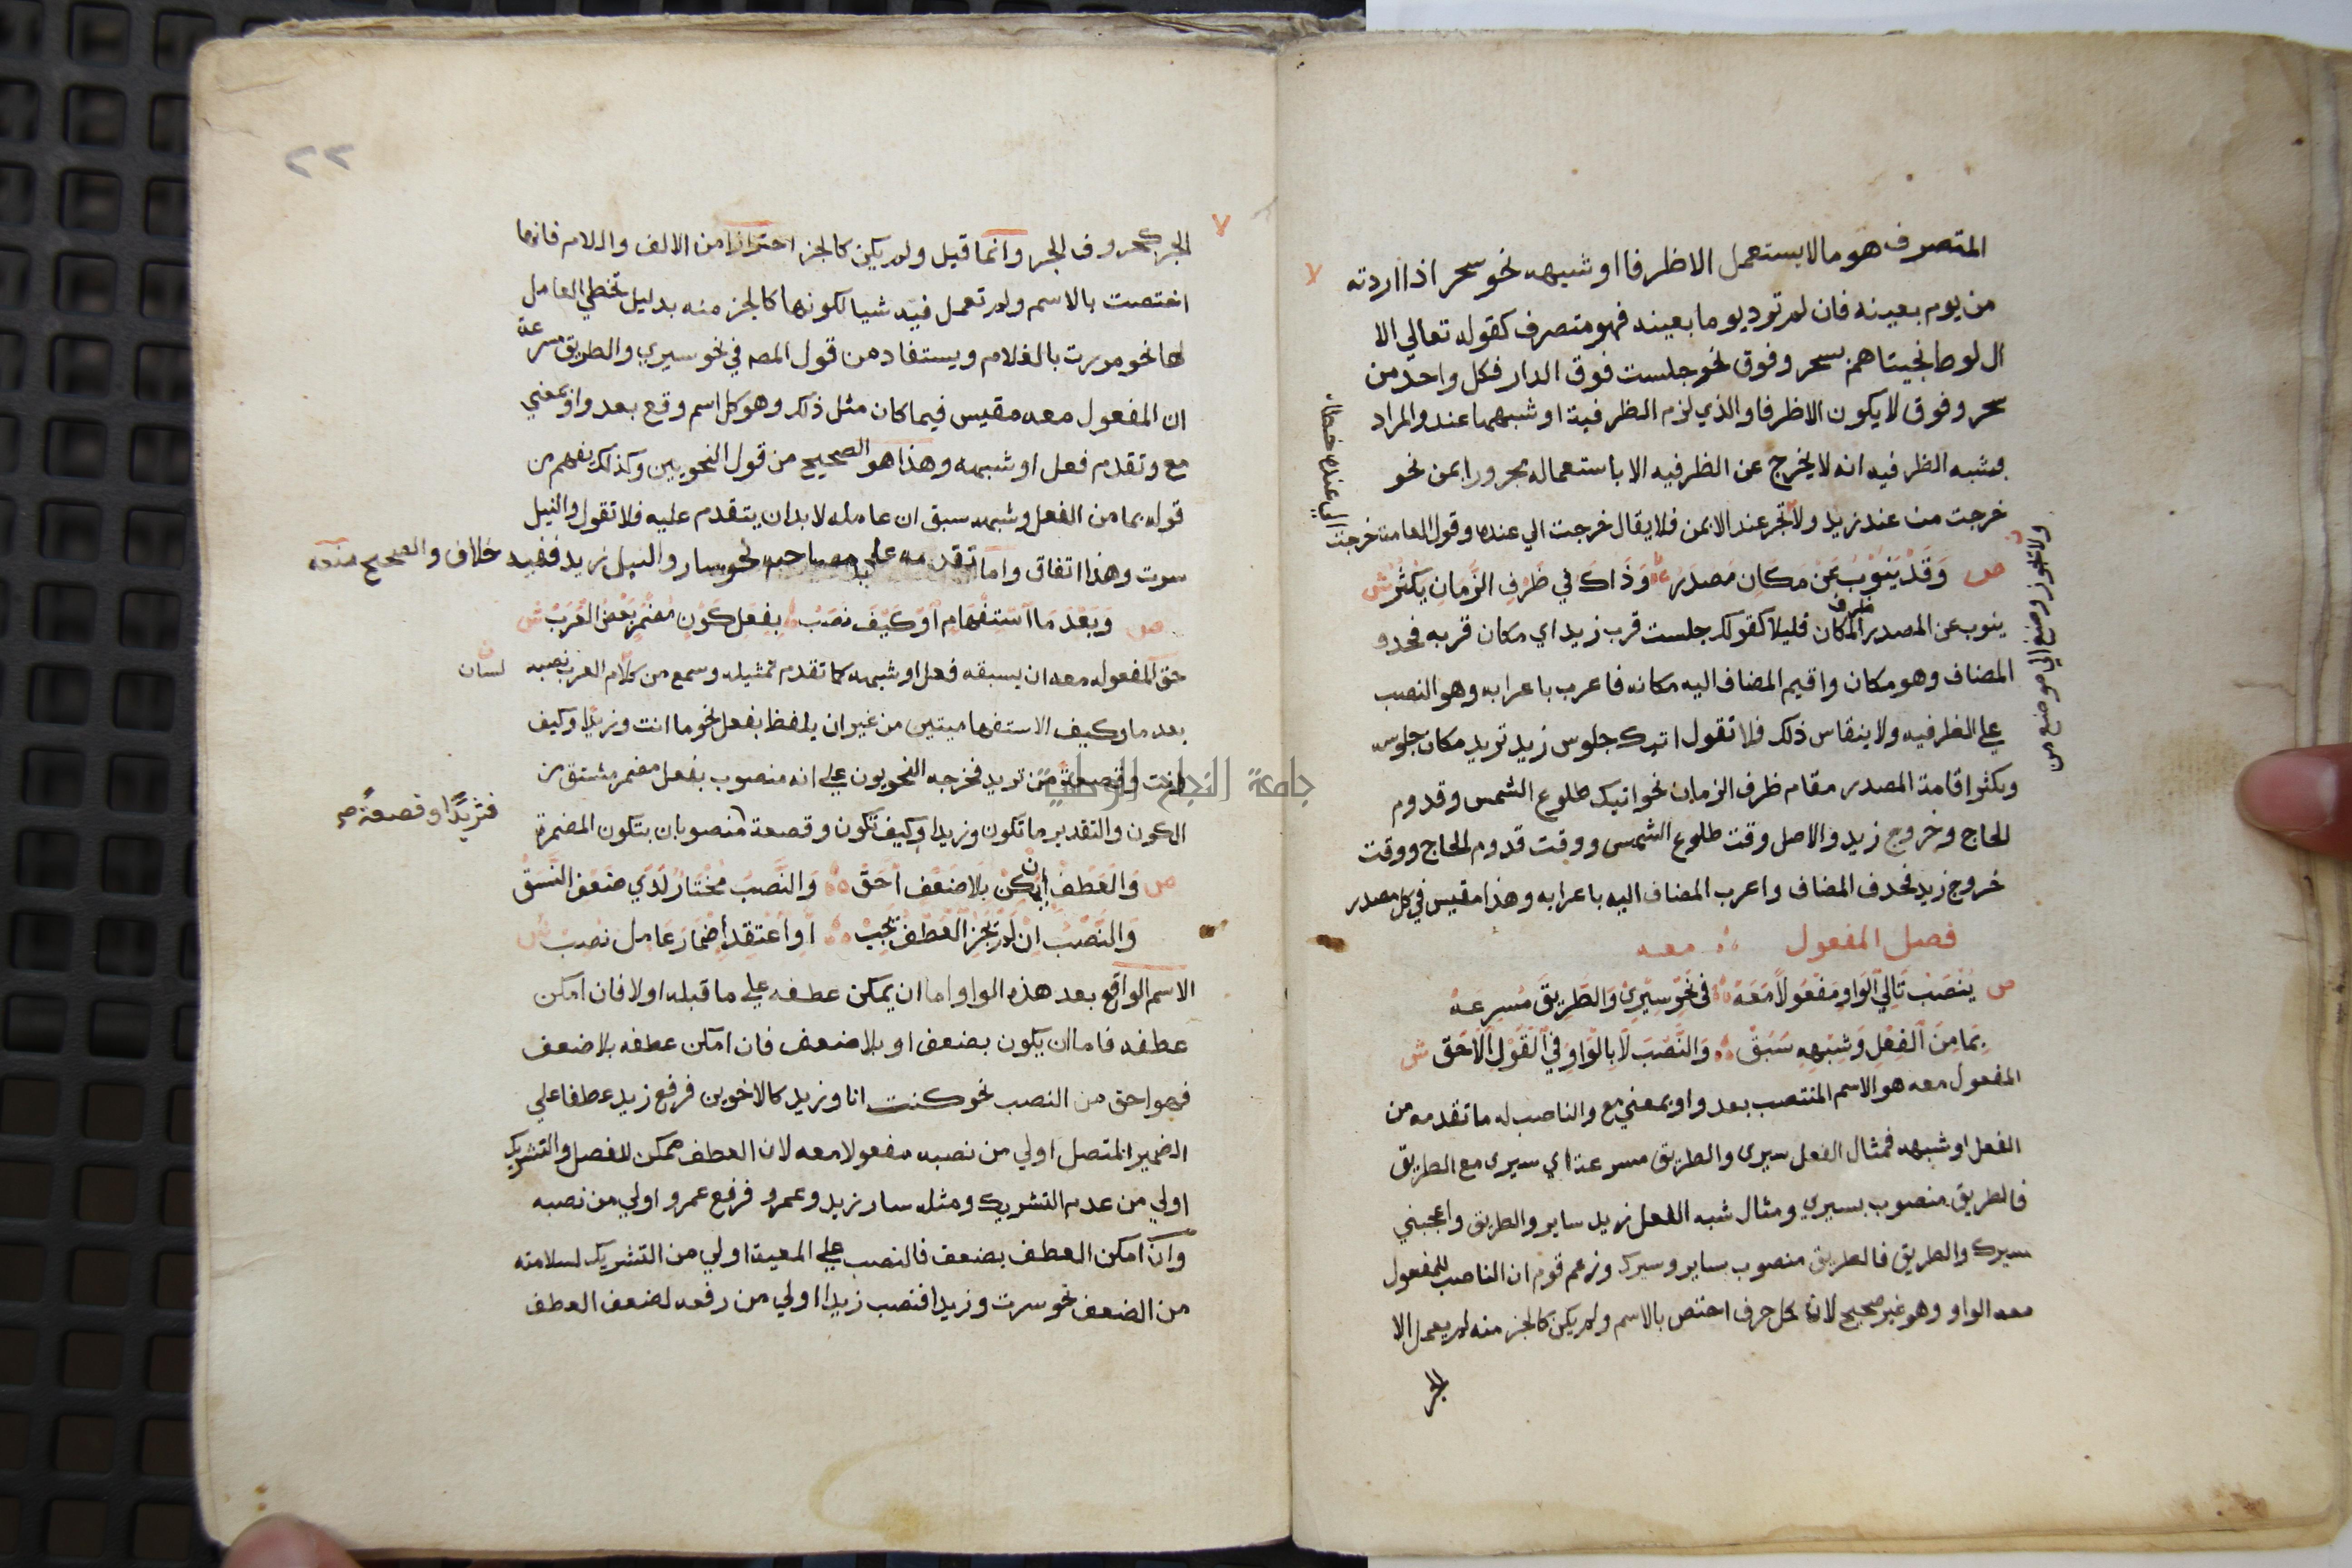 المتصرف هو مالا يستعمل الاظرفا او شبهه نحو سحر اذا اردته
من يوم بعينه فان لم ترد يوما بعينه فهو متصرف كقوله تعالي الا
ال لوط نجيناهم بسحر وفوق نحو جلست فوق الدار فكل واحد من
سحر وفوق لا يكون الاظرفا والذي لزم الظرفية او شبهها عند والمراد
بشبه الظرفيه انه لا يخرج عن الظرفيه الا باستعماله مجرورا بمن نحو
خرجت من عند زيد ولا تجر عند الا بمن فلا يقال خرجت الي عنده وقول العامة خرجت
الي عنده خطاء
ولا تجوز وضع الي موضع من
ص وَقَدْ يَنُوبُ عَنْ مَكَانٍ مَصدَرُ وَذَاكَ فِي ظَرْفِ الزَّمَانِ يَكْثُرُ ش
ينوب عن المصدر ظرف المكان قليلا كقولك جلست قرب زيد اي مكان قربه فحذف
المضاف وهو مكان واقيم المضاف اليه مكانه فاعرب باعرابه وهو النصب
علي الظرفيه ولا ينقاس ذلك فلا تقول اتيك جلوس زيد تريد مكان جلوسه
ويكثر اقامة المصدر مقام ظرف الزمان نحو اتيك طلوع الشمس وقدوم
الحاج وخروج زيد والاصل وقت طلوع الشمس ووقت قدوم الحاج ووقت
خروج زيد فحذف المضاف واعرب المضاف اليه باعرابه وهذا مقيس في كل مصدر
فصل المفعول معه
ص يُنْصَبُ تَالِي الْوَاوِ مَفْعُولاً مَعَهْ فِي نَحْوِ سِيْرِي وَالطَّرِيقَ مُسْرِعَهْ
بِمَا مِنَ الْفِعْلِ وَشِبْهِهِ سَبَقْ وَالنَّصْبُ لَا بِالْوَاوِ فِي الْقَوْلِ الْاَحَقّ ش
المفعول معه هو الاسم المنتصب بعد واو بمعني مع والناصب له ما تقدمه من
الفعل او شبهه فمثال الفعل سيري والطريق مسرعة اي سيري مع الطريق
فالطريق منصوب بسيري ومثال شبه الفعل زيد ساير والطريق واعجبني
سيرك والطريق فالطريق منصوب بساير وسيرك وزعم قوم ان الناصب للمفعول
معه الواو وهو غير صحيح لان كل حرف اختص بالاسم ولم يكن كالجز منه لم يعمل الا
الجر
٢٢
الجر كحروف الجر وانما قيل ولم يكن كالجز احترازا من الالف واللام فانها
اختصت بالاسم ولم تعمل فيه شيا لكونها كالجز منه بدليل تخطي العامل
لها نحو مررت بالغلام ويستفاد من قول المصه في نحو سيري والطريق مسرعة
ان المفعول معه مقيس فيما كان مثل ذلك وهو كل اسم وقع بعد واو بمعني
مع وتقدم فعل او شبهه وهذا هو الصحيح من قول النحويين وكذلك يفهم من
قوله بما من الفعل وشبهه سبق ان عامله لابد ان يتقدم عليه فلا تقول والنيل
سرت وهذا اتفاق واما تقدمه علي مصاحبه نحو سار والنيل زيد ففيه خلاف والصحيح منعه
ص وَبَعْدَ مَا اسْتِفْهَامٍ اَوْ كَيْفَ نَصَبْ بِفِعْلِ كَوْنٍ مُضْمَرٍ بَعْضُ الْعَرَبْ ش
حق المفعول معه ان يسبقه فعل او شبهه كما تقدم تمثيله وسمع من كلام العرب نصبه
لسان
بعد ما وكيف الاستفهاميتين من غير ان يلفظ بفعل نحو ما انت وزيدا وكيف
انت وقصعة من تريد فخرجه النحويون علي انه منصوب بفعل مضمر مشتق من
الكون والتقدير ما تكون وزيدا وكيف تكون وقصعة منصوبان بتكون المضمرة
فثريدًا وقصعةً صح
ص وَالْعَطْفُ اِنْ يُمْكِنْ بِلَا ضَعْفٍ اَحَقّ وَالنَّصْبُ مُخْتَارٌ لَدَي ضَعْفِ النَّسَقْ
وَالنَّصْبُ اِنْ لَمْ يَجُزِ الْعَطْفُ يَجِبْ اَوِ اعْتَقِدْ اِضْمَارَ عَامِلٍ تُصِبْ ش
الاسم الواقع بعد هذه الواو اما ان يمكن عطفه علي ما قبله اولا فان امكن
عطفه فاما ان يكون بضعف او بلا ضعف فان امكن عطفه بلا ضعف
فهو احق من النصب نحو كنت انا وزيد كالاخوين فرفع زيد عطفا علي
الضمير المتصل اولي من نصبه مفعولا معه لان العطف ممكن للفصل والتشريك
اولي من عدم التشريك ومثله سار زيد وعمرو فرفع عمرو اولي من نصبه
وان امكن العطف بضعف فالنصب علي المعية اولي من التشريك لسلامته
من الضعف نحو سرت وزيدا فنصب زيدا اولي من رفعه لضعف العطف
جامعة النجاح الوطنية